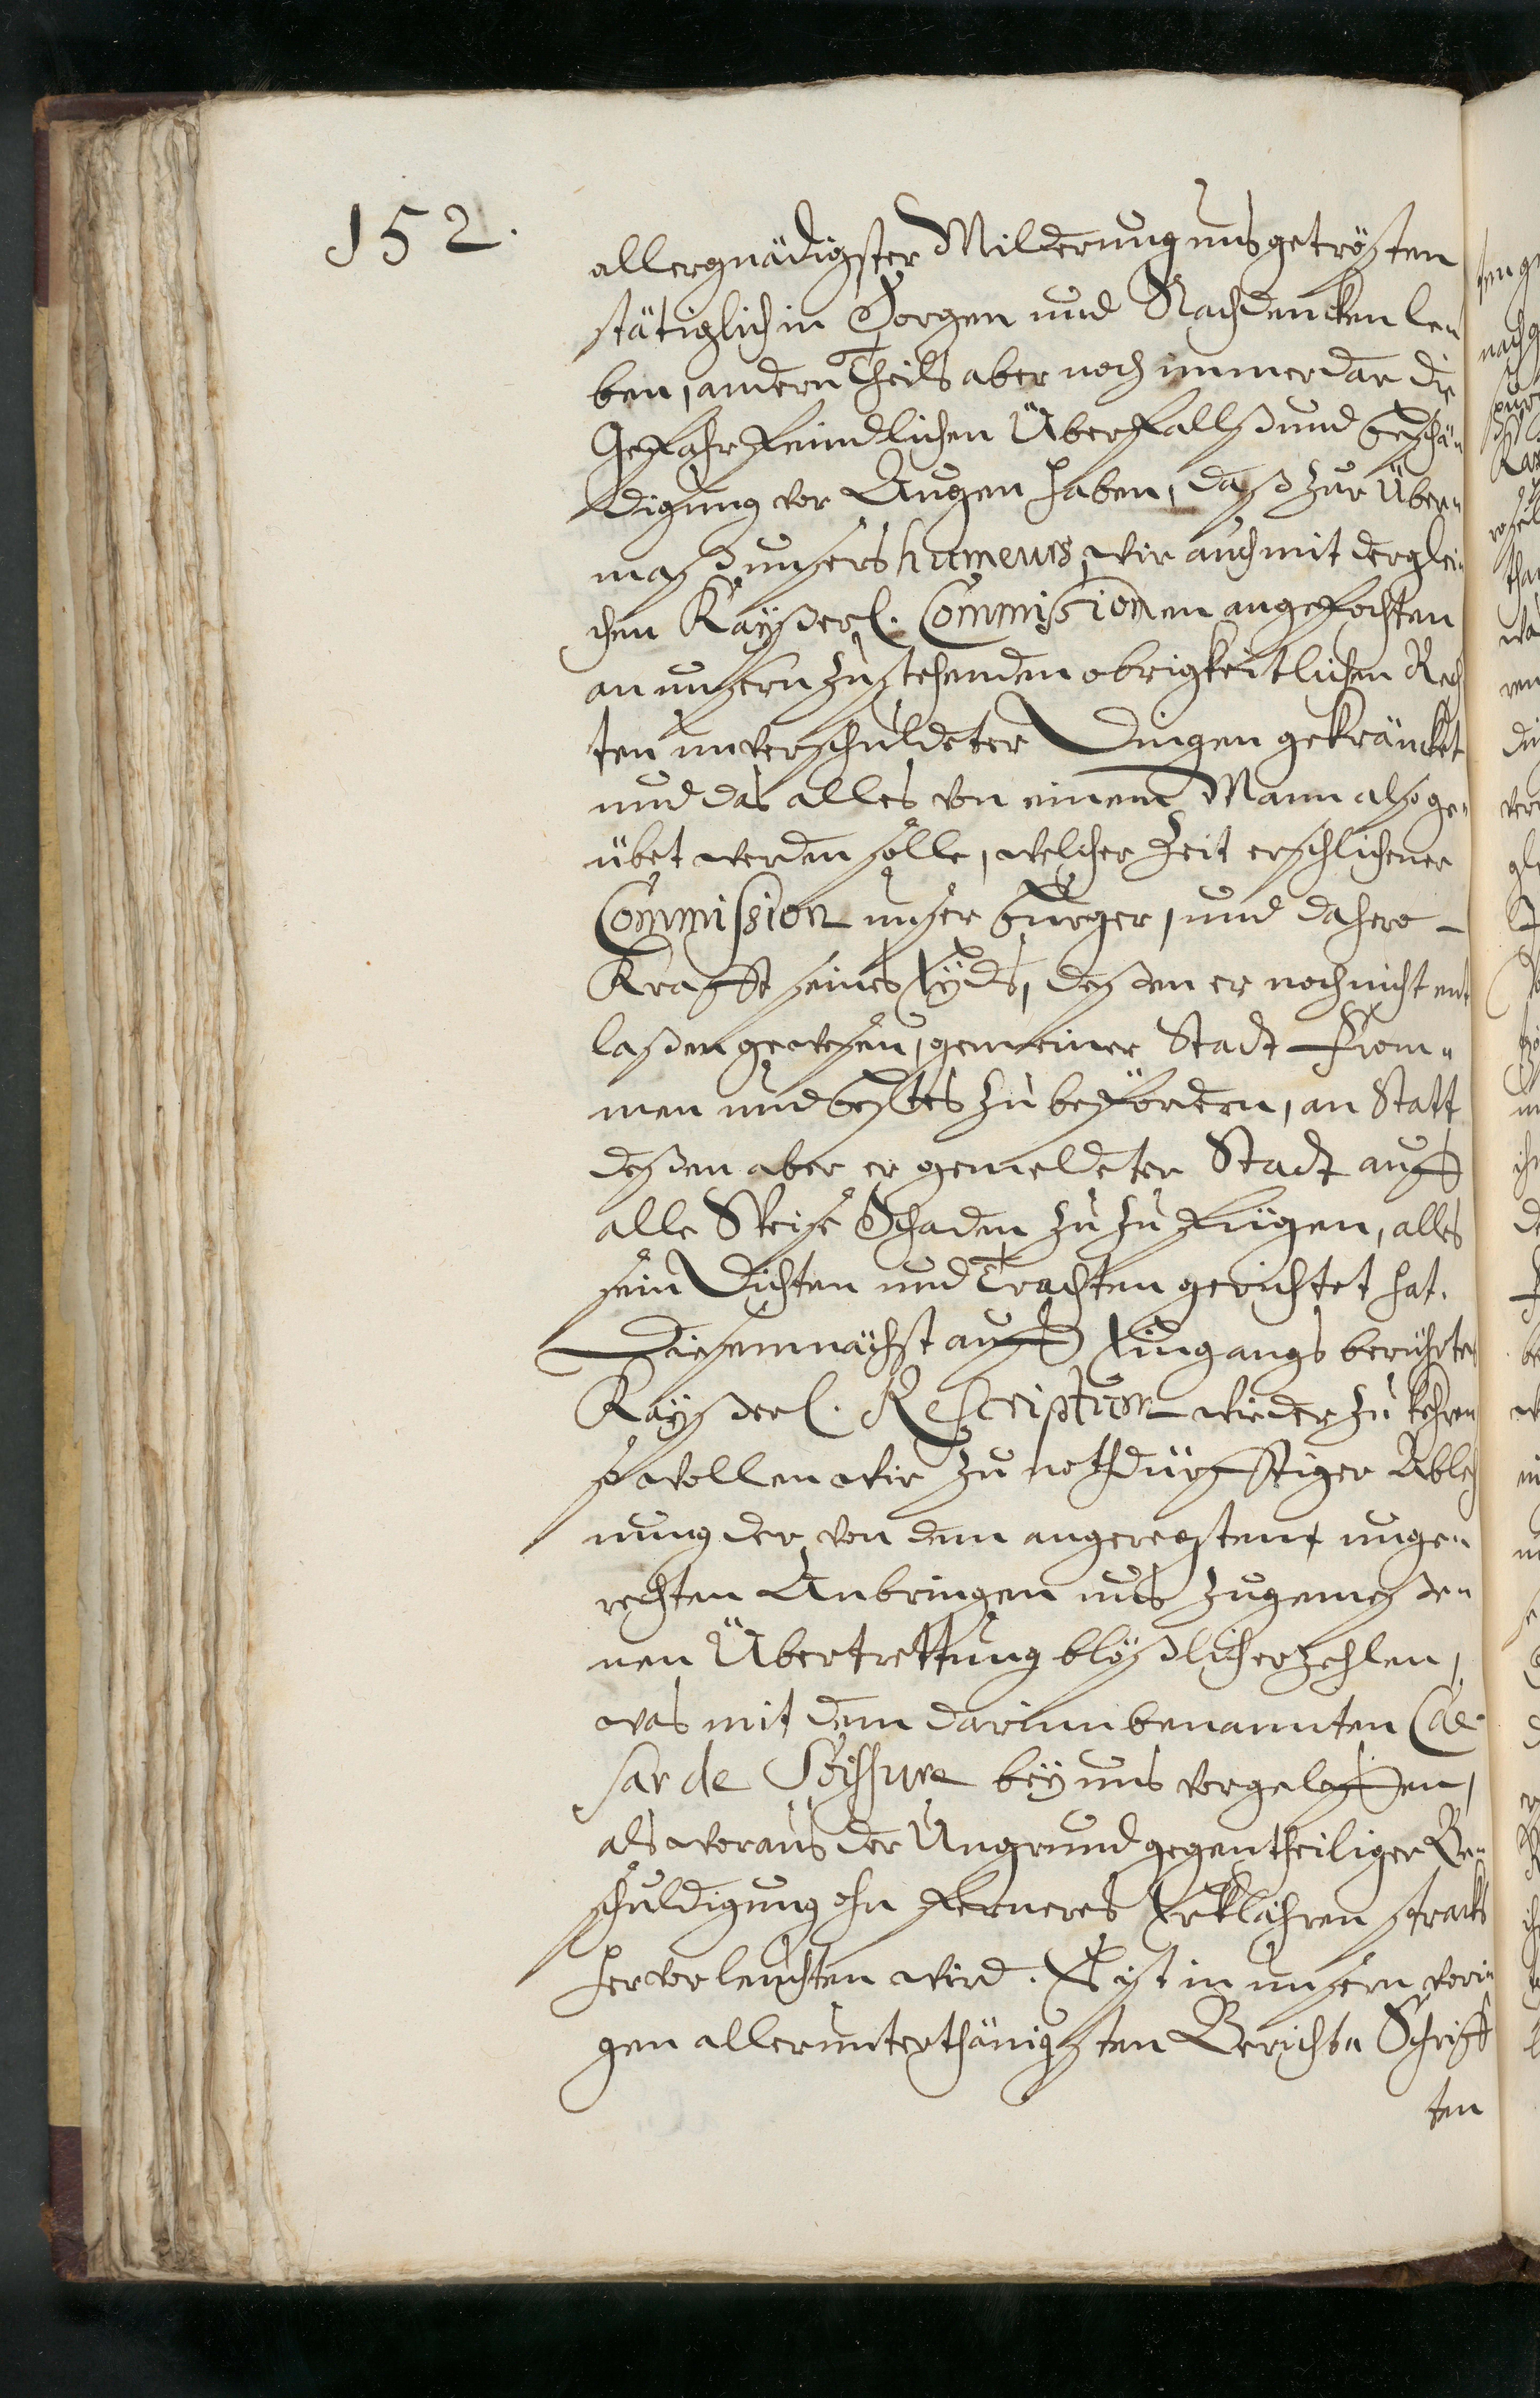 152.
allergnädigster Milderung uns getrösten
stätiglich in Sorgen und Nachdencken le„
ben, andern Theils aber noch immerdar die
Gefahr feindlichen Überfallß und beschä„
digung vor Augen haben, daß zur Über„
maß unsers humeurs, wir auch mit derglei„
chen Kayßerl. Commissionen angefochten
an unsern zustehenden obrigkeitlichen Rech
ten unverschuldeter Dingen gekräncket
und das alles von einem Mann also ge„
übet werden solle, welcher Zeit erschlichener
Commission unser burger, und dahero
Krafft seines Eyds, deßen er noch nicht ent
laßen gewesen, gemeiner Stadt From„
men und bestes zu befördern, an Statt
deßen aber er gemeldeter Stadt auff
alle Weise Schaden zu zufügen, alles
sein Dichten und Trachten gerichtet hat.
Diesemnächst auff Eingangs berührtes
Kayßerl. Rescriptum wieder zu kehren
so wollen wir zu nothdürfftiger Ableh
nung der, von dem angeregten unge„
rechten Anbringen uns zugemeße„
nen Übertrettung blößlich erzehlen,
was mit dem darinn benannten Cae„
sar de Soissure bey uns vorgeloffen,
als woraus der Ungrund gegentheiliger Be„
schuldigung ohn ferneres Erklähren stracks
hervorleuchten wird. Es ist in unsern vori„
gen allerunterthänigsten Berichts Schriff
ten